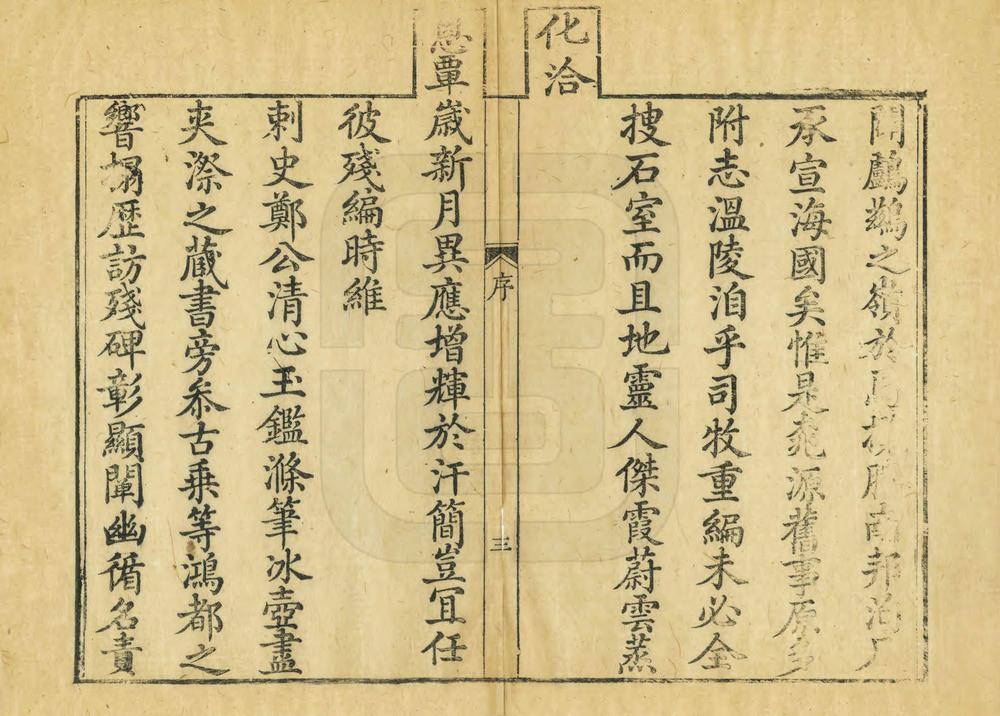 之嶺於勝南邦
承宣海國矣惟是桃源舊事原多
附志溫陵洎乎司牧重編未必全
搜石室而且地靈人傑霞蔚雲蒸
化洽
序
三
恩覃歲新月異應增輝於汗簡豈宜任
彼殘編時維
刺史鄭公清心玉鑑滌筆冰壺盡
夾漈之藏書旁叅古乗等鴻都之
響搨歴訪殘碑彰顯闡幽循名責